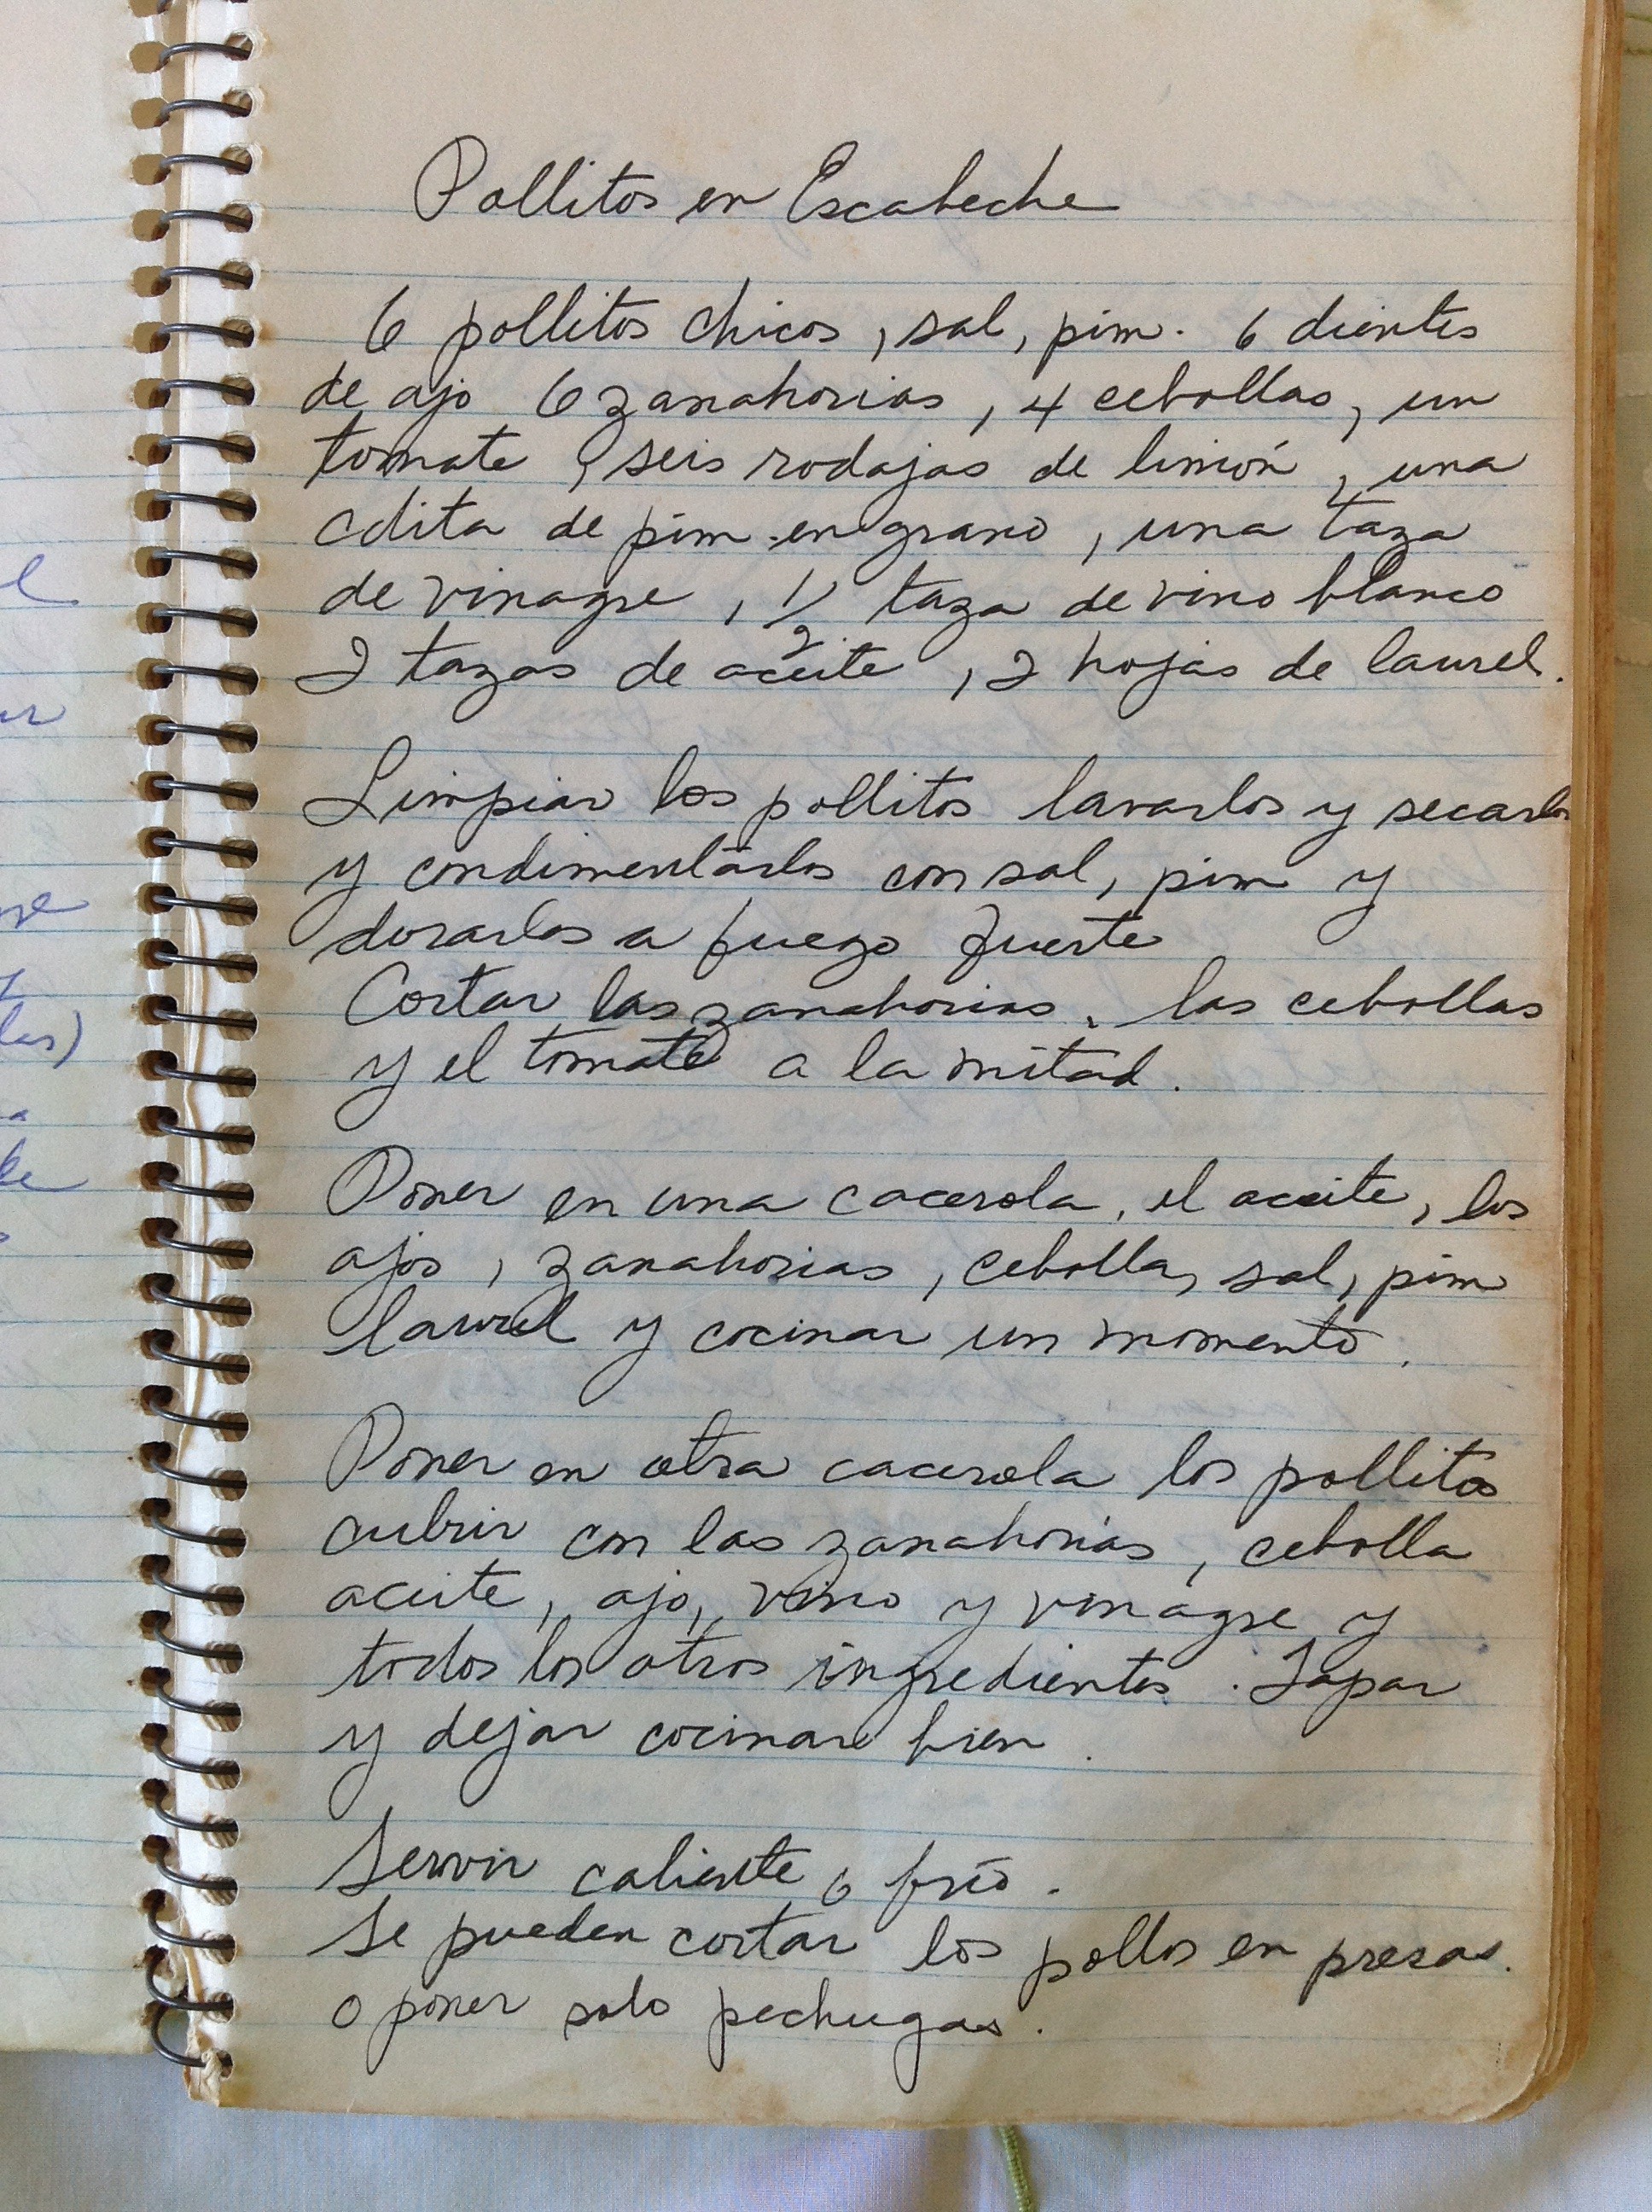 Pollitos en Escabeche
6 pollitos chicos, sal, pim. 6 dientes
de ajo 6 zanahorias, 4 cebollas, un
tomate, seis rodajas de limón, una
cdita de pim. en grano, una taza
de vinagre, 1/2 taza de vino blanco
2 tazas de aceite, 2 hojas de laurel.
Limpiar los pollitos lavarlos y secarlos
y condimentarlos con sal, pim y
dorarlos a fuego fuerte
Cortar las zanahorias, las cebollas
y el tomate a la mitad.
Poner en una cacerola, el aceite, los
ajos, zanahorias, cebolla, sal, pim
laurel y cocinar un momento.
Poner en otra cacerola los pollitos
cubrir con las zanahorias, cebolla
aceite, ajo, vino y vinagre y
todos los otros ingredientes. Tapar
y dejar cocinar bien.
Servir caliente ó frío.
Se pueden cortar los pollos en presas.
o poner solo pechugas.
l
ur
las)
a
de